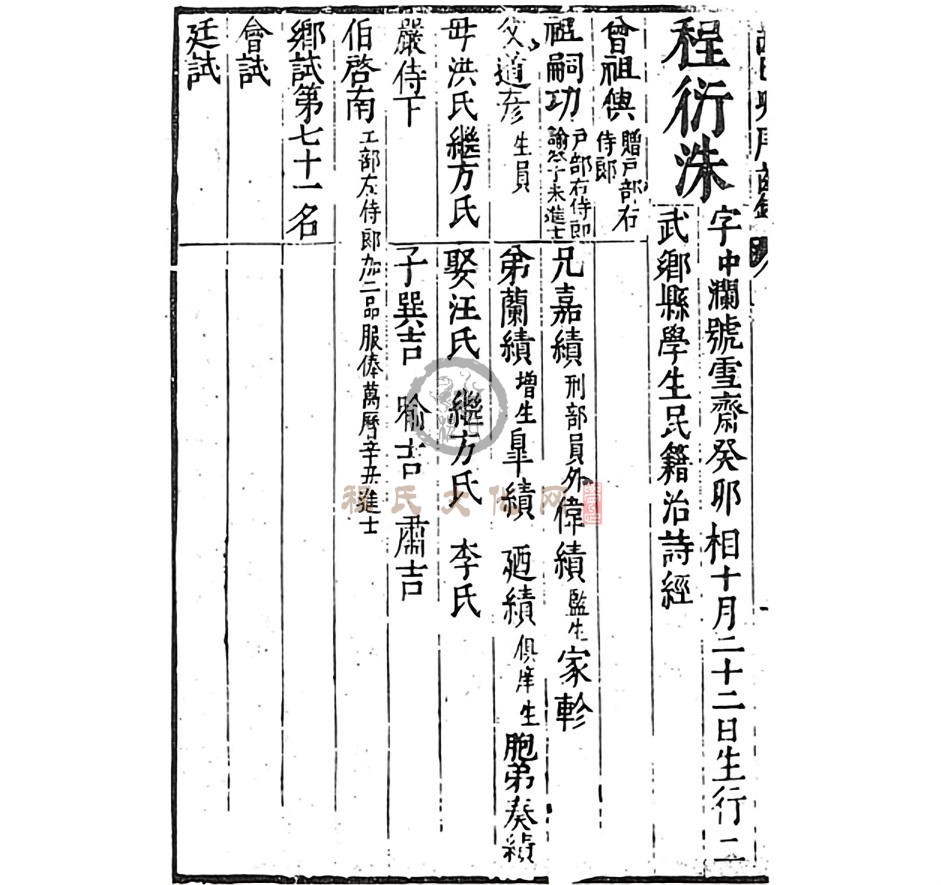 程衍洙
字中瀾號雪齋癸卯相十月二十二日生行二
武鄉縣學生民籍治詩經
曾祖㒜贈戶部右侍郎
祖嗣功戶部右侍郎
兄嘉績刑部員外偉績監生家軫
父道彥生員
弟蘭績增生皐績迺績俱庠生胞弟奏績
母洪氏繼方氏
娶汪氏繼方氏李氏
嚴侍下
子巽吉喻吉肅吉
伯啓南工部左侍郎加二品服俸萬曆辛丑進士
鄉試第七十一名
會試
廷試
程氏文化网